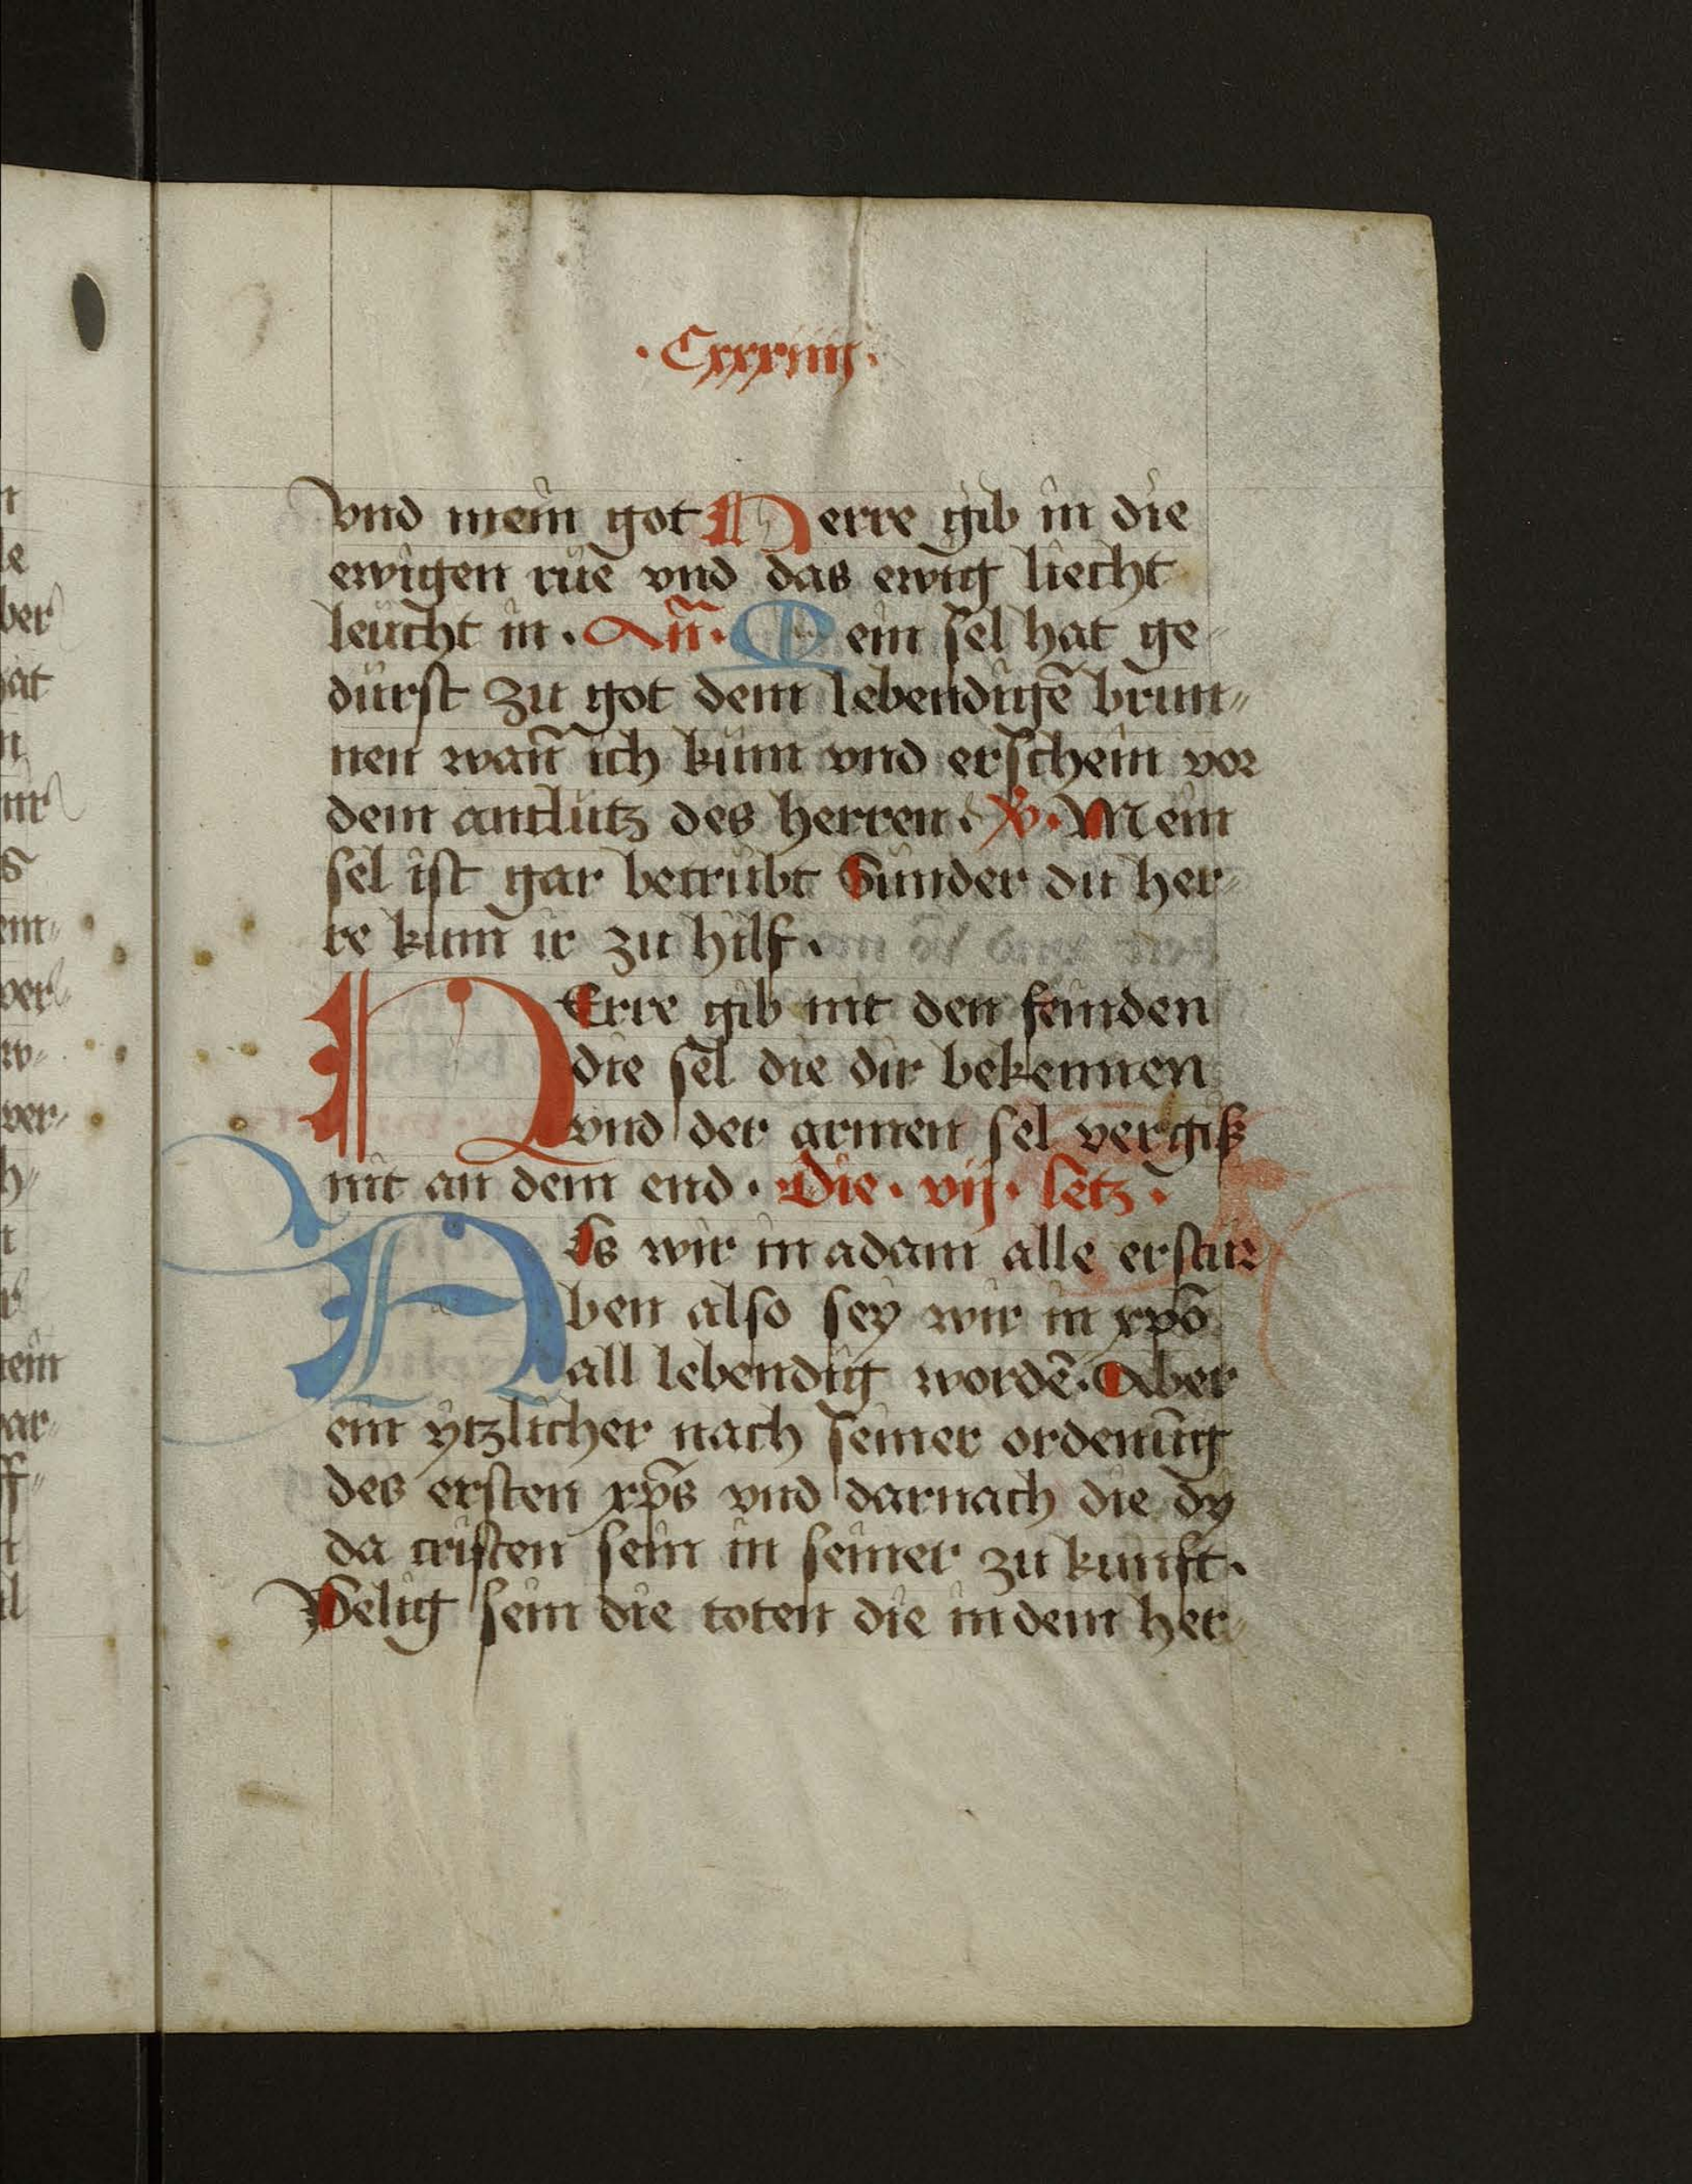 · Cxxxiiij ·
vnd mein got Herre gib in die
ewigen rue vnd das ewig liecht
leucht in . An̄ . Mein sel hat ge
durst zu got dem lebendigē brun„
nen wan̄ ich kum vnd erschein vor
dem antlutz des herren . V . Mein
sel ist gar betrubt Sunder du her„
re kum̄ ir zu hilf .
HErre gib nit den feinden
die sel die dir bekennen
vnd der armen sel vergiß
nit an dem end . Die . vij . letz .
Als wir in adam alle erstur
ben also sey wir in xpō
all lebendig wordē . Aber
ein ytzlicher nach seiner ordenūg
des ersten xp̄s vnd darnach die dy
da cristen sein in seiner zu kunft .
Selig sein die toten die in dem her„